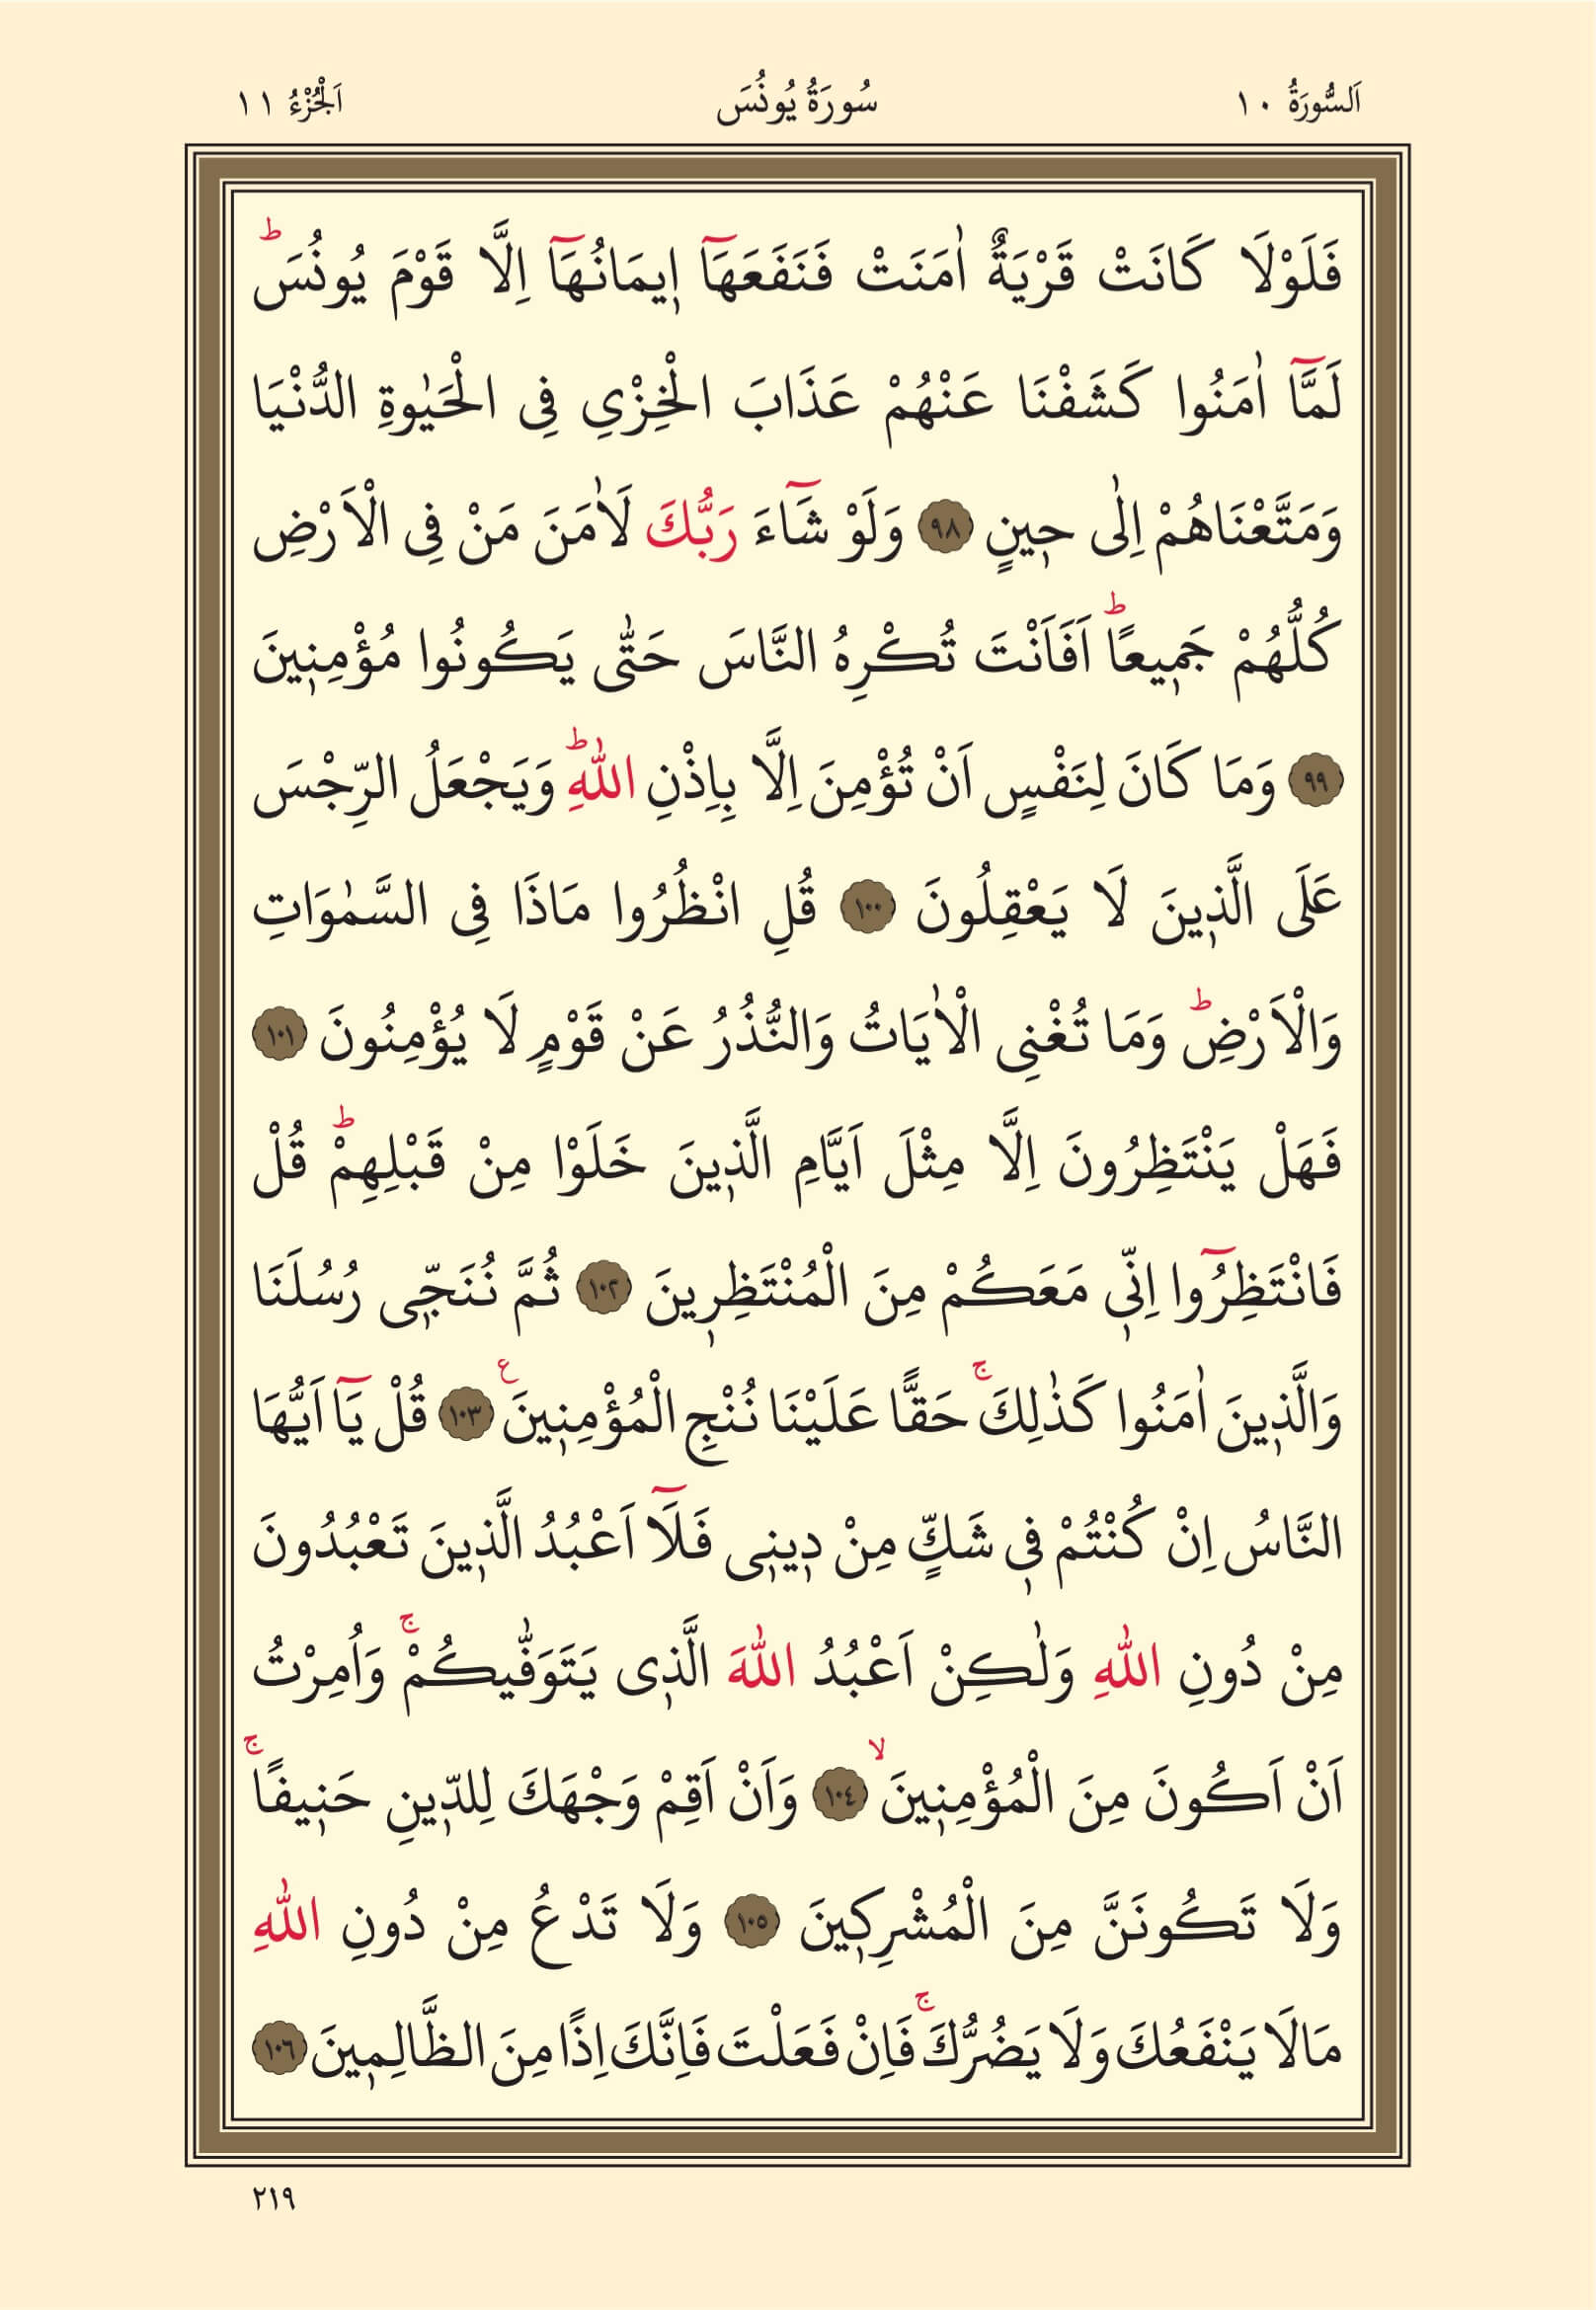 اَلسُّورَةُ ١٠ سُورَةُ يُونُسَ اَلْجُزْءُ ١١
فَلَوْلَا كَانَتْ قَرْيَةٌ اٰمَنَتْ فَنَفَعَهَآ ا۪يمَانُهَآ اِلَّا قَوْمَ يُونُسَۜ
لَمَّآ اٰمَنُوا كَشَفْنَا عَنْهُمْ عَذَابَ الْخِزْيِ فِي الْحَيٰوةِ الدُّنْيَا
وَمَتَّعْنَاهُمْ اِلٰى ح۪ينٍ ٩٨ وَلَوْ شَٓاءَ رَبُّكَ لَاٰمَنَ مَنْ فِي الْاَرْضِ
كُلُّهُمْ جَم۪يعًاۜ اَفَاَنْتَ تُكْرِهُ النَّاسَ حَتّٰى يَكُونُوا مُؤْمِن۪ينَ
٩٩ وَمَا كَانَ لِنَفْسٍ اَنْ تُؤْمِنَ اِلَّا بِاِذْنِ اللّٰهِۜ وَيَجْعَلُ الرِّجْسَ
عَلَى الَّذ۪ينَ لَا يَعْقِلُونَ ١٠٠ قُلِ انْظُرُوا مَاذَا فِي السَّمٰوَاتِ
وَالْاَرْضِۜ وَمَا تُغْنِي الْاٰيَاتُ وَالنُّذُرُ عَنْ قَوْمٍ لَا يُؤْمِنُونَ ١٠١
فَهَلْ يَنْتَظِرُونَ اِلَّا مِثْلَ اَيَّامِ الَّذ۪ينَ خَلَوْا مِنْ قَبْلِهِمْۜ قُلْ
فَانْتَظِرُٓوا اِنّ۪ي مَعَكُمْ مِنَ الْمُنْتَظِر۪ينَ ١٠٢ ثُمَّ نُنَجّ۪ي رُسُلَنَا
وَالَّذ۪ينَ اٰمَنُوا كَذٰلِكَۚ حَقًّا عَلَيْنَا نُنْجِ الْمُؤْمِن۪ينَ ع ١٠٣ قُلْ يَٓا اَيُّهَا
النَّاسُ اِنْ كُنْتُمْ ف۪ي شَكٍّ مِنْ د۪ين۪ي فَلَٓا اَعْبُدُ الَّذ۪ينَ تَعْبُدُونَ
مِنْ دُونِ اللّٰهِ وَلٰكِنْ اَعْبُدُ اللّٰهَ الَّذ۪ي يَتَوَفّٰيكُمْۚ وَاُمِرْتُ
اَنْ اَكُونَ مِنَ الْمُؤْمِن۪ينَۙ ١٠٤ وَاَنْ اَقِمْ وَجْهَكَ لِلدّ۪ينِ حَن۪يفًاۚ
وَلَا تَكُونَنَّ مِنَ الْمُشْرِك۪ينَ ١٠٥ وَلَا تَدْعُ مِنْ دُونِ اللّٰهِ
مَالَا يَنْفَعُكَ وَلَا يَضُرُّكَۚ فَاِنْ فَعَلْتَ فَاِنَّكَ اِذًا مِنَ الظَّالِم۪ينَ ١٠٦
٢١٩